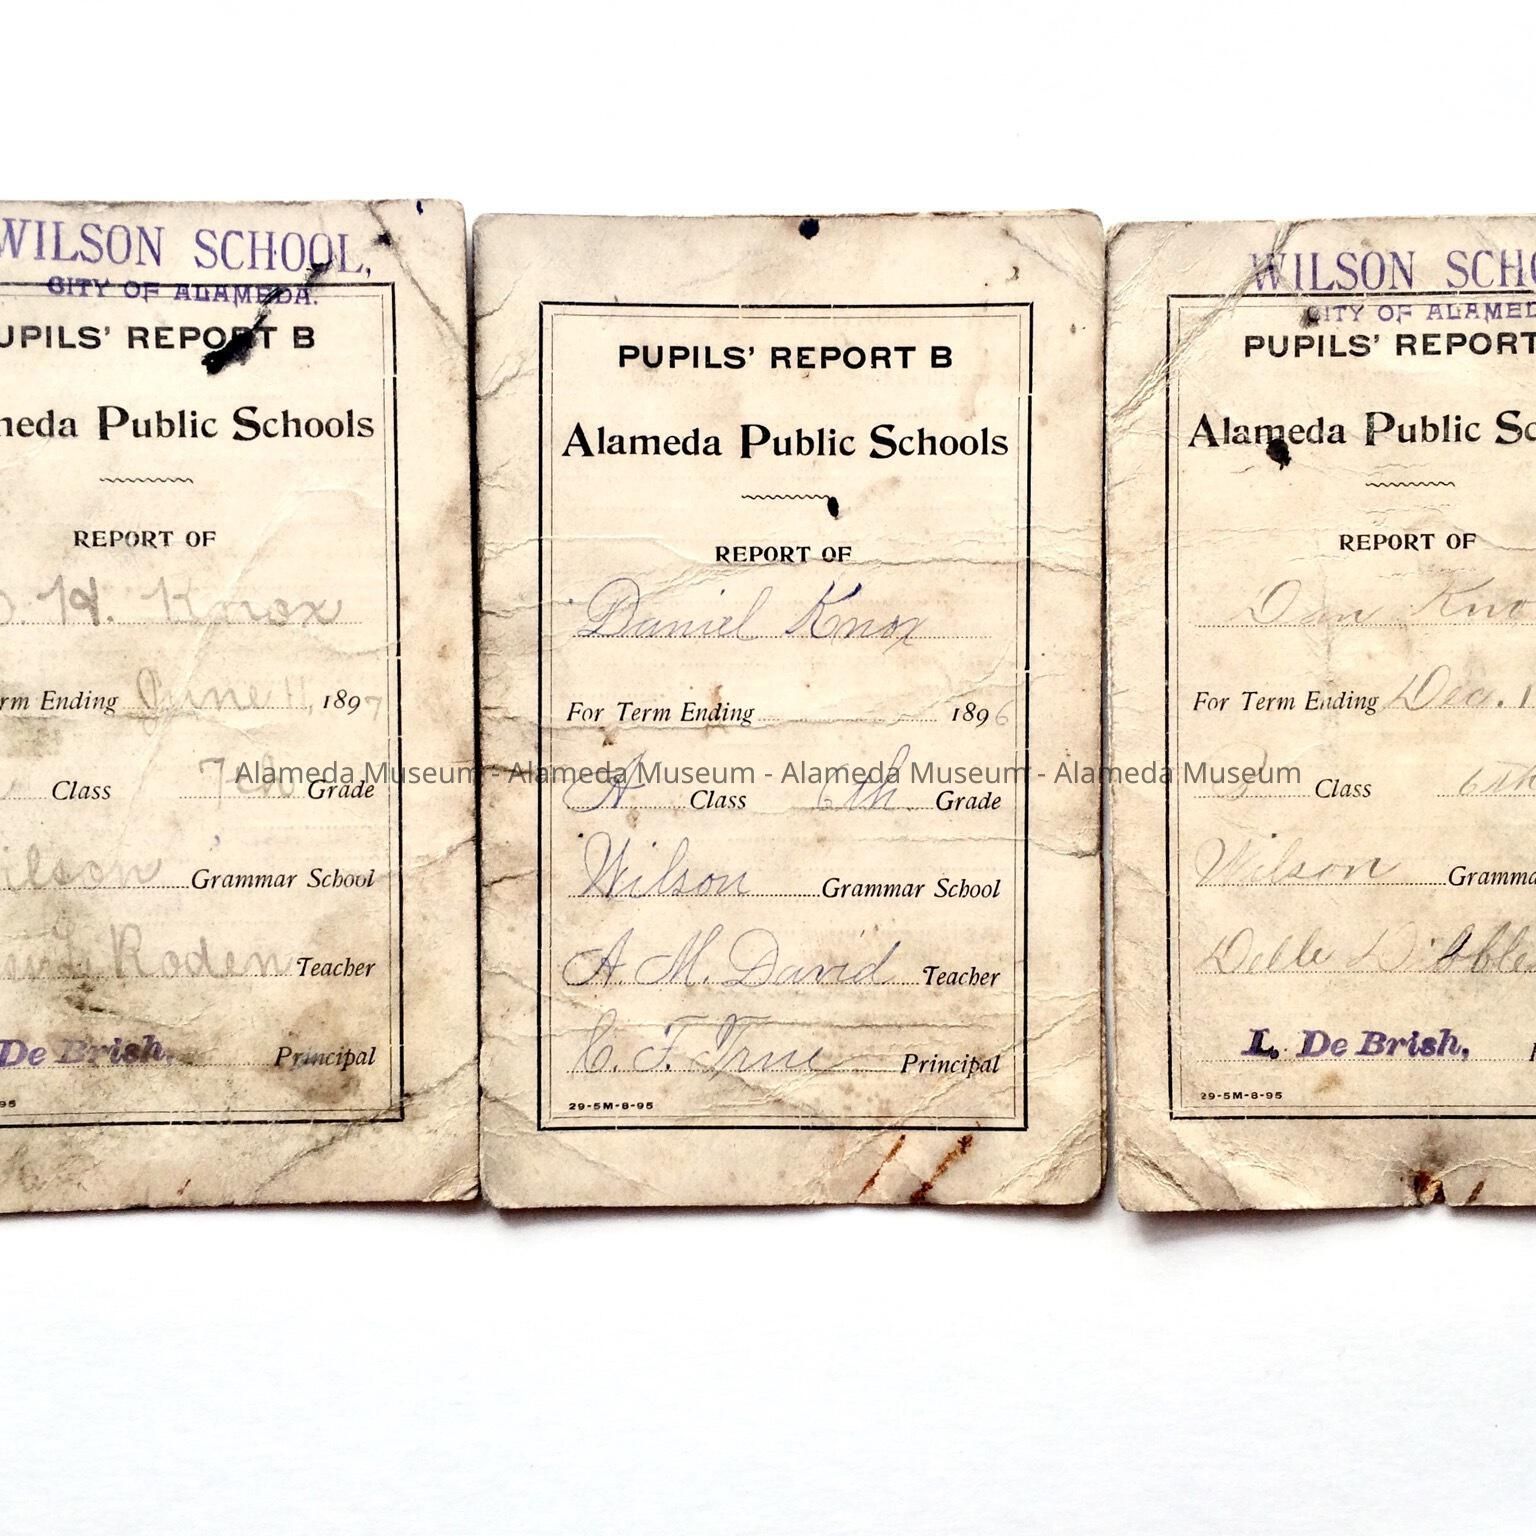 WILSON SCHOOL,
CITY OF ALAMEDA.
PUPILS' REPORT B
meda Public Schools
REPORT OF
D. H. Knox
rm Ending June 11, 1897
Class 7th Grade
ilson Grammar School
Roden Teacher
De Brish, Principal
95
PUPILS' REPORT B
Alameda Public Schools
REPORT OF
Daniel Knox
For Term Ending 1896
A Class 6th Grade
Wilson Grammar School
A. M. David Teacher
C. F. True Principal
29-5M-8-95
WILSON SCHO
CITY OF ALAMED
PUPILS' REPORT
Alameda Public Sc
REPORT OF
Dan Kno
For Term Ending Dec. 1
B Class 6th
Wilson Gramma
Dibble
L. De Brish,
29-5M-8-95
Alameda Museum - Alameda Museum - Alameda Museum - Alameda Museum